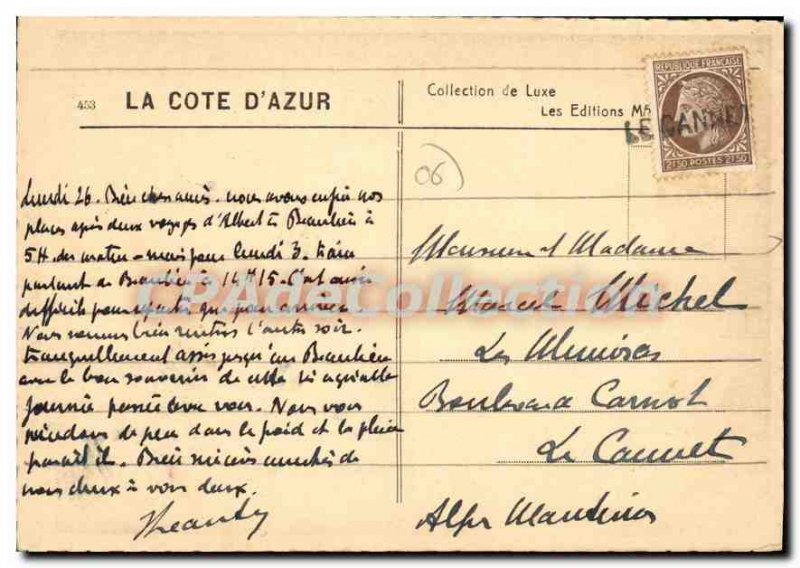 453 LA COTE D'AZUR
Collection de Luxe
Les Editions M
REPUBLIQUE FRANÇAISE
2F50 POSTES 2F50
LE CANNET
06
CPAdeCollection
Lundi 26. Bien chers amis. nous avons enfin nos
places après deux voyages d'Albert à Beaulieu à
5H. du matin - mais pour lundi 3. train
partant de Beaulieu à 14H15. C'est aussi
difficile pour repartir que pour arriver.
Nous sommes bien rentrés l'autre soir.
tranquillement assis jusqu'au Beaulieu
avec le bon souvenir de cette si agréable
journée passée avec vous. Nous vous
de peu dans le froid et la pluie
paraît il. Bien sincères amitiés de
nous deux à vous deux.
Monsieur et Madame
Marcel Michel
Les Mimosas
Boulevard Carnot
Le Cannet
Alpes Maritimes